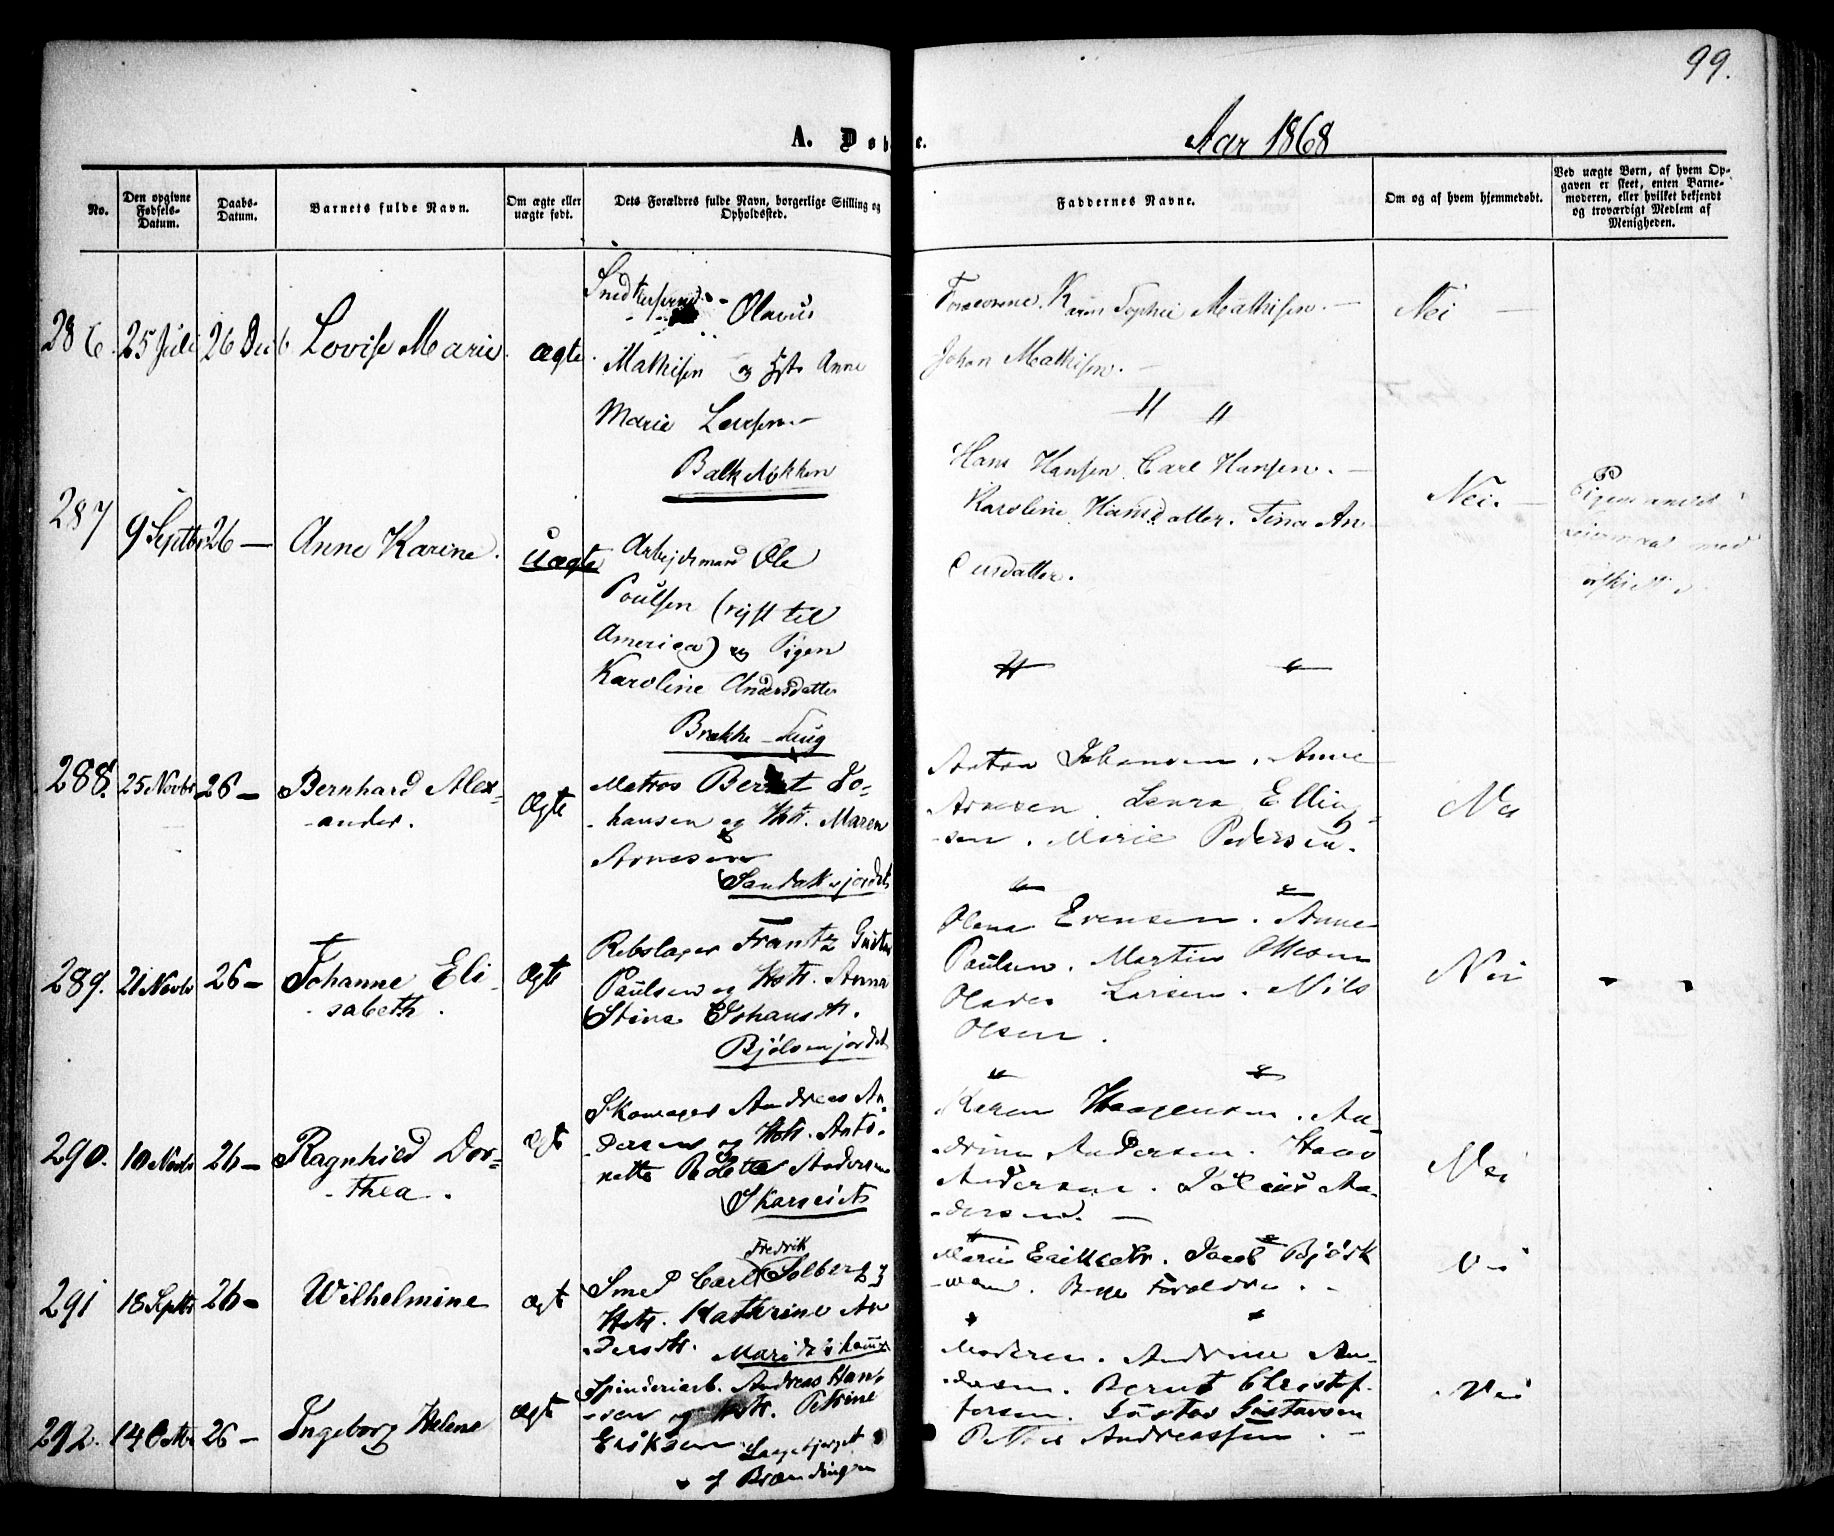 99.
A. Døb e. Aar 1868
No.
Den opgivne
Fødsels-
Datum.
Daabs-
Datum.
Barnets fulde Navn.
Om ægte eller
uægte født.
Dets Forældres fulde Navn, borgerlige Stilling og
Opholdssted.
Faddernes Navne.
Om og af hvem hjemmedøbt.
Ved uægte Børn, af hvem Op-
gaven er skeet, enten Barne-
moderen, eller hvilket bekjendt
og troværdigt Medlem af
Menigheden.
286. 25 Juli 26 Decb Lovise Marie. ægte.
Olavus
Mathisen og Hst. Anne
Marie Larsen.
Balkeløkken
Forældrene. Karen Sophie Mathisen. —
Johan Mathisen. —
Nei —
" "
287 9 Septbr 26 — Anne Karine. Uægte
Arbejdsmand Ole
Poulsen (rejst til
America) og Pigen
Karoline Andersdatter
Brække-Suug
Hans Hansen. Carl Hansen. —
Karoline Hansdatter. Tina An-
dersdatter.
Nei. —
Pigen
med
" "
288. 25 Novbr 26 — Bernhard Alex-
-ander.
Ægte
Matros Bernt Jo-
-hansen og Hstr. Maren
Arnesen
Sandakerjordet
Anton Johansen. Anne
Arnesen. Laura Elling-
-sen. Marie Pedersen.
Nei
" "
289. 21 Novbr 26 — Johanne Eli-
-sabeth.
Ægte
Rebslager Frantz Gustav
Paulsen og Hstr. Anna
Stina Johansdtr.
Bjølsenjordet
Olena Evensen. Anne
Paulsen. Martin Ottesen
Olaves Larsen. Nils
Olsen.
Nei
" "
290. 10 Novbr 26 — Ragnhild Dor-
-thea.
Ægte
Skomager Andreas An-
-dersen og Hstr. Anto-
nette Andersen
Karen Haagensen. An-
-drine Andersen. Hans
Andersen. Julius An-
-dersen. —
Nei
" "
291 18 Septbr 26 — Wilhelmine Ægt
Fredrik
Smed Carl Solberg og
Hstr. Kathrine An-
-dersdtr. Maridalskoug
Marie Eriksdtr. Jacob Bjørk-
-mann. Begge Forældre. -
Nei
" "
292. 14 Octbr 26 — Ingeborg Helene Ægt
Spinderiarb. Andreas Han-
-sen og Hstr. Petrine
Eriksen
Moderen. Andrine An-
-dersen. Bernt Christof-
-fersen. Gustav Gustavsen
Petter Andreassen. —
Nei